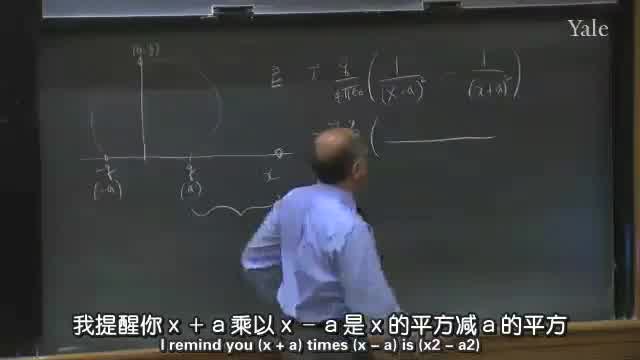 Yale
(0, y)
E = i q/4πε₀ ( 1/(x-a)² - 1/(x+a)² )
-q q x
(-a) (a)
我提醒你 x + a 乘以 x - a 是 x 的平方减 a 的平方
I remind you (x + a) times (x - a) is (x2 - a2)